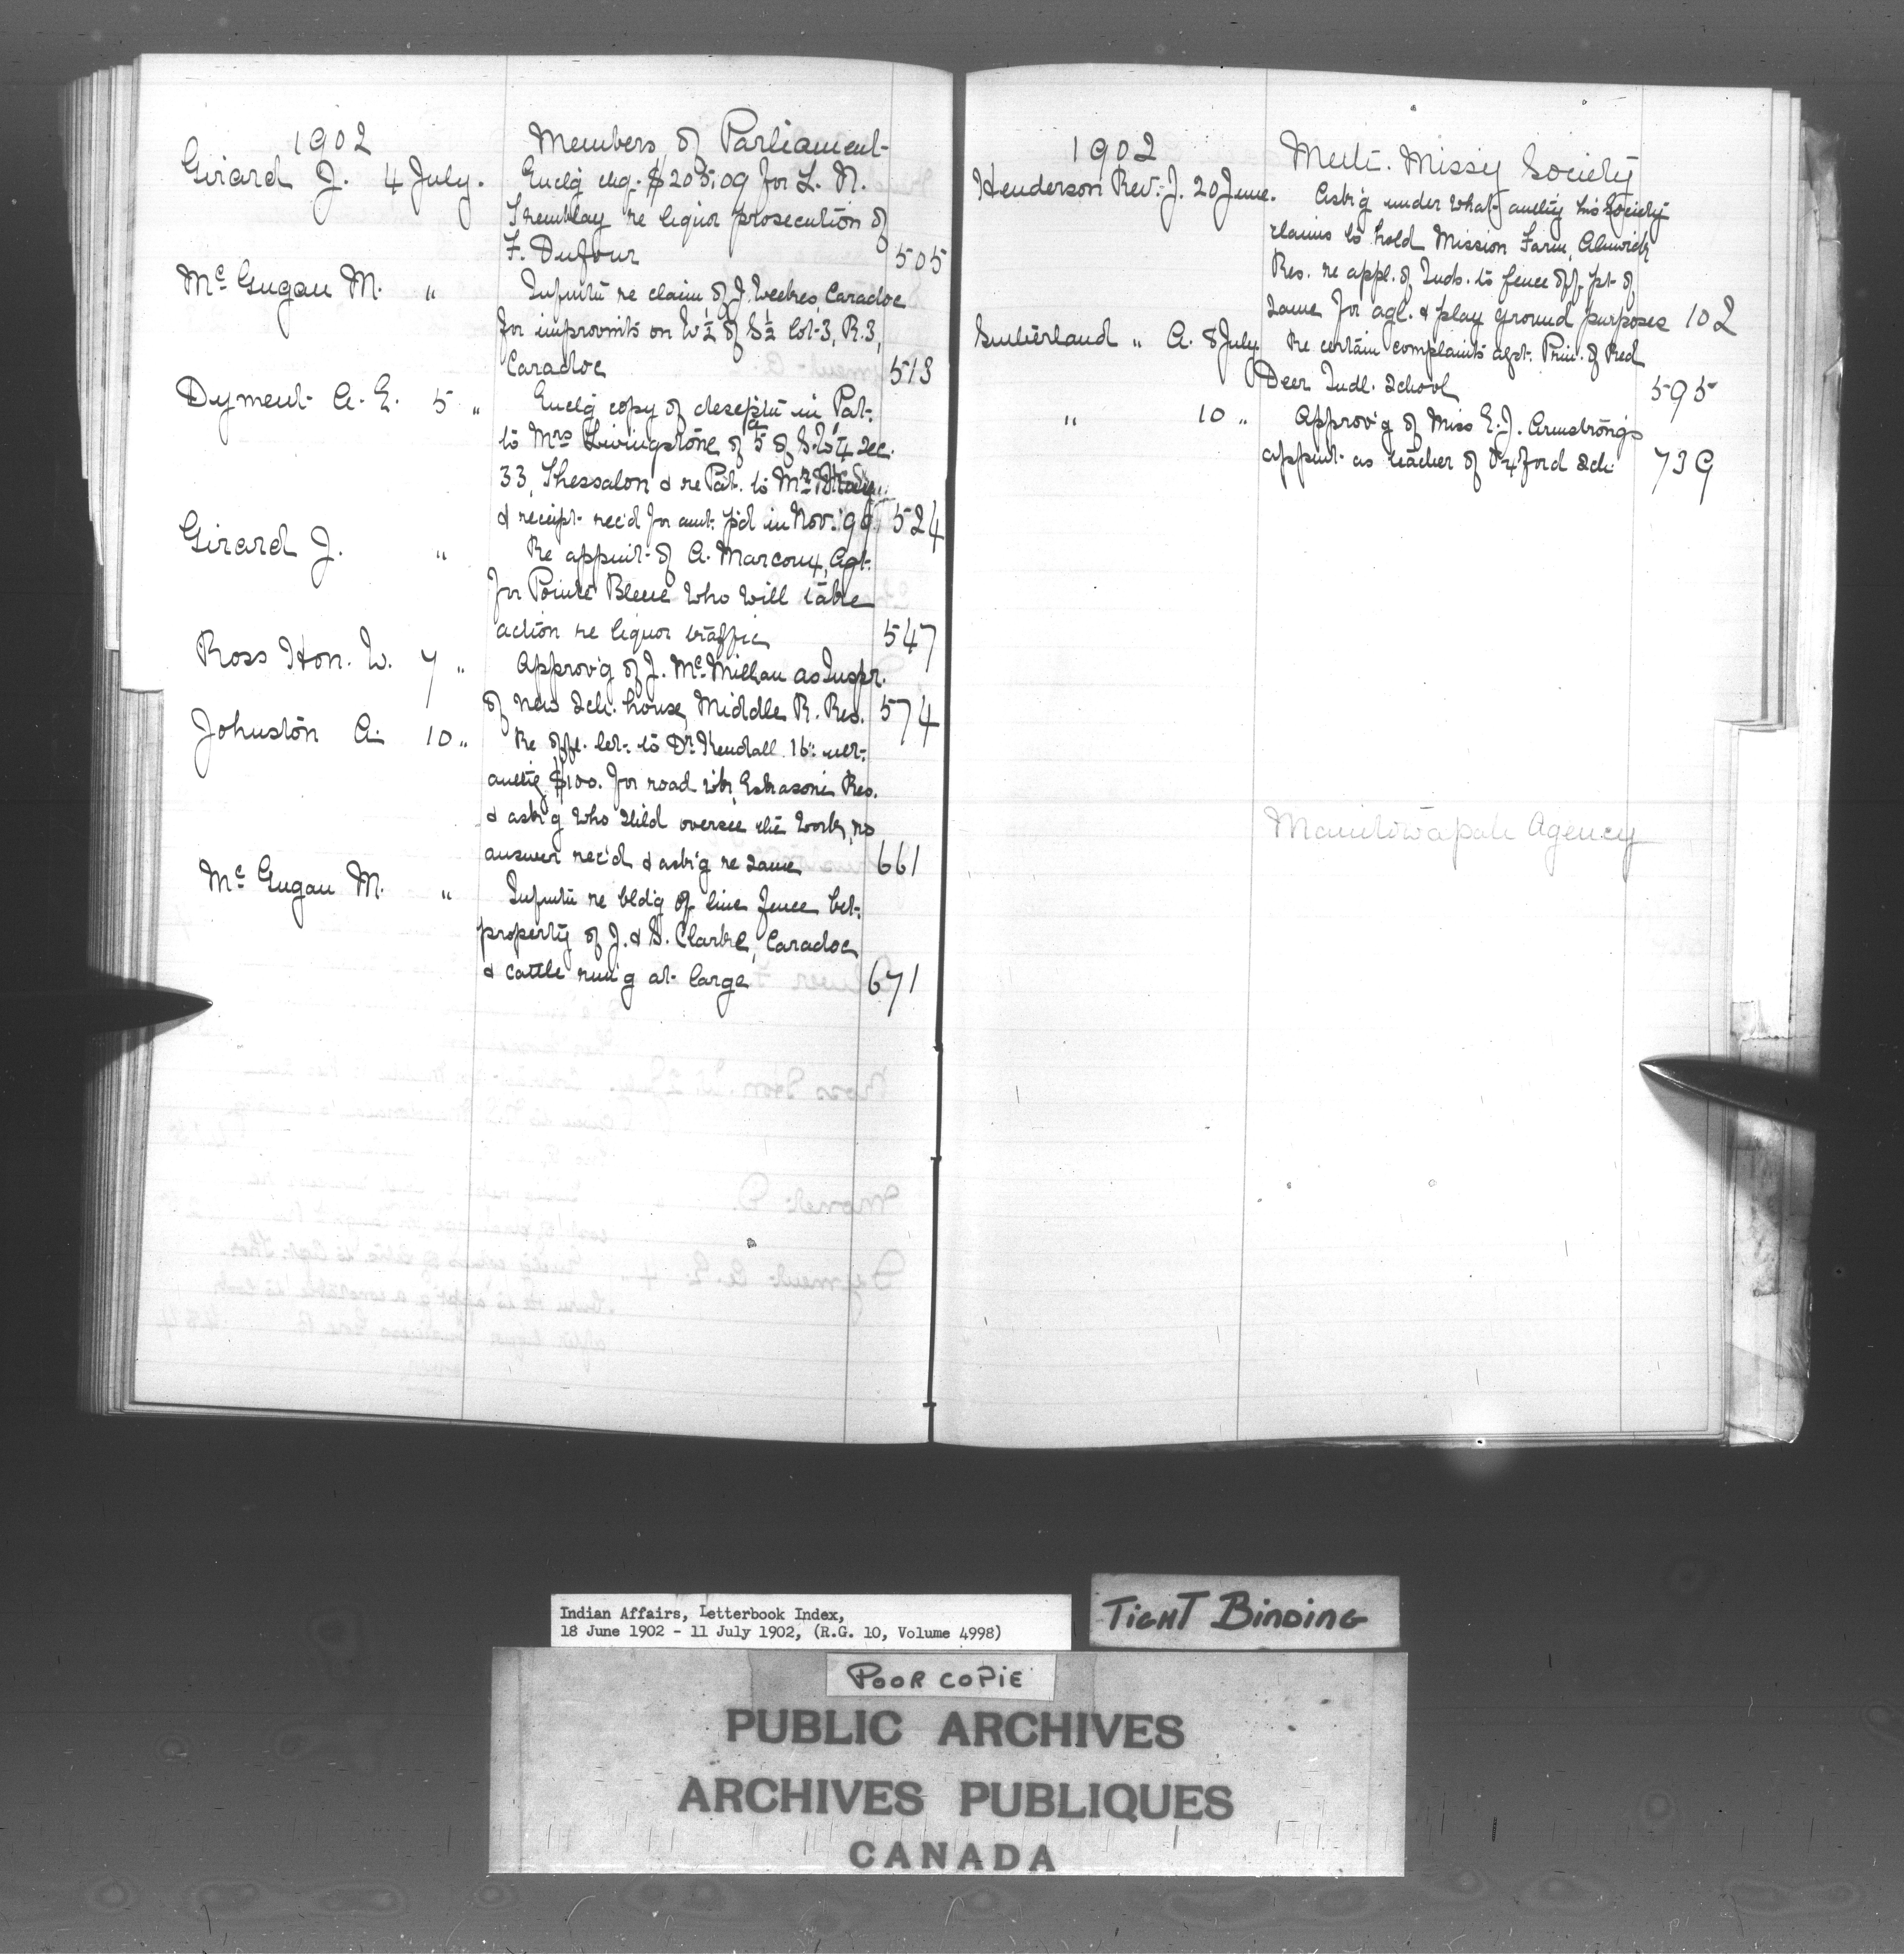 1902 Members of Parliament
Girard J. 4 July. Enclg chq. $205.09 for L. N.
Tremblay re liquor prosecution of
F. Dufour 505
McGugan M. " Infmtn re claim of J. Weekes, Caradoc
for improvmts on W½ of S½ lot 3, R.3,
Caradoc 513
Dyment A. E. 5 " Enclg copy of descptn in Pat.
to Mrs Livingstone of 5 a of S.W¼ Sec.
33, Thessalon & re Pat. to Mr
& receipt rec'd for amt. p'd in Nov. '99 524
Girard J. " Re appmt of A. Marcoux, Agt.
for Pointe Bleue who will take
action re liquor traffic 547
Ross Hon. W. 7 " Approv'g of J. McMillan as Inspr.
of new Sch. house, Middle R. Res. 574
Johnston A. 10 " Re offl. let. to Dr Kendall 16th ult.
authg $100. for road wk, Eskasoni Res.
& ask'g who shld oversee the work, no
answer rec'd & ask'g re same 661
McGugan M. " Infmtn re bldg of line fence bet.
property of J. & S. Clarke, Caradoc
& cattle run'g at large 671
1902 Meth. Missy Society
Henderson Rev. J. 20 June. Ask'g under what authy his Society
claims to hold Mission Farm, Alnwick
Res. re appl. of Inds. to fence off pt of
same for agl. & play ground purposes 102
Sutherland " A. 8 July Re certain complaints agst. Prin. of Red
Deer Indl. School 595
" 10 " Approv'g of Miss E. J. Armstrong's
appmt as teacher of Oxford Sch. 739
Manitowapah Agency
Indian Affairs, Letterbook Index,
18 June 1902 - 11 July 1902, (R.G. 10, Volume 4998)
TIGHT BINDING
POOR COPIE
PUBLIC ARCHIVES
ARCHIVES PUBLIQUES
CANADA